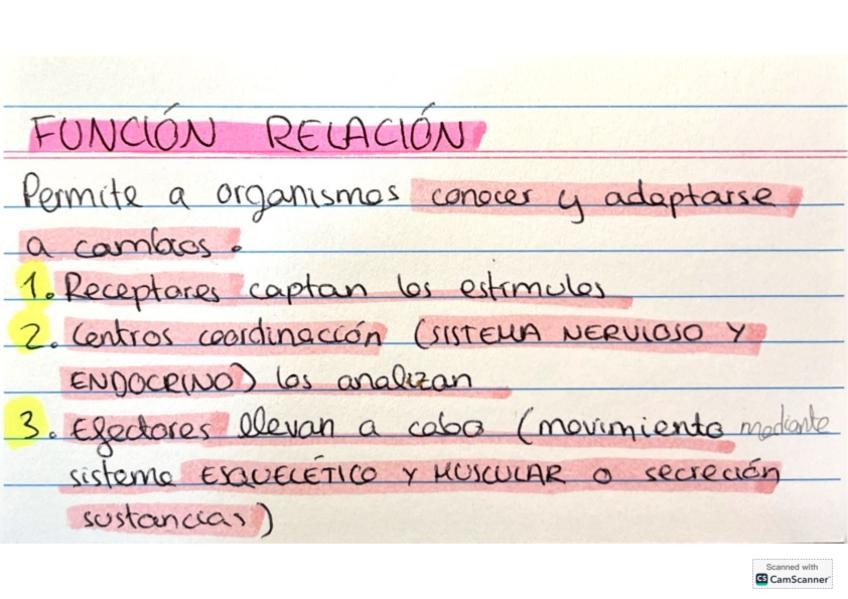 FUNCIÓN RELACIÓN
Permite a organismos conocer y adaptarse
a cambios.
1. Receptores captan los estímulos
2. Centros coordinacción (SISTEMA NERVIOSO Y
ENDOCRINO) los analizan
3. Efectores llevan a cabo (movimiento mediante
sistema ESQUELÉTICO Y MUSCULAR o secreción
sustancias)
Scanned with
CS CamScanner